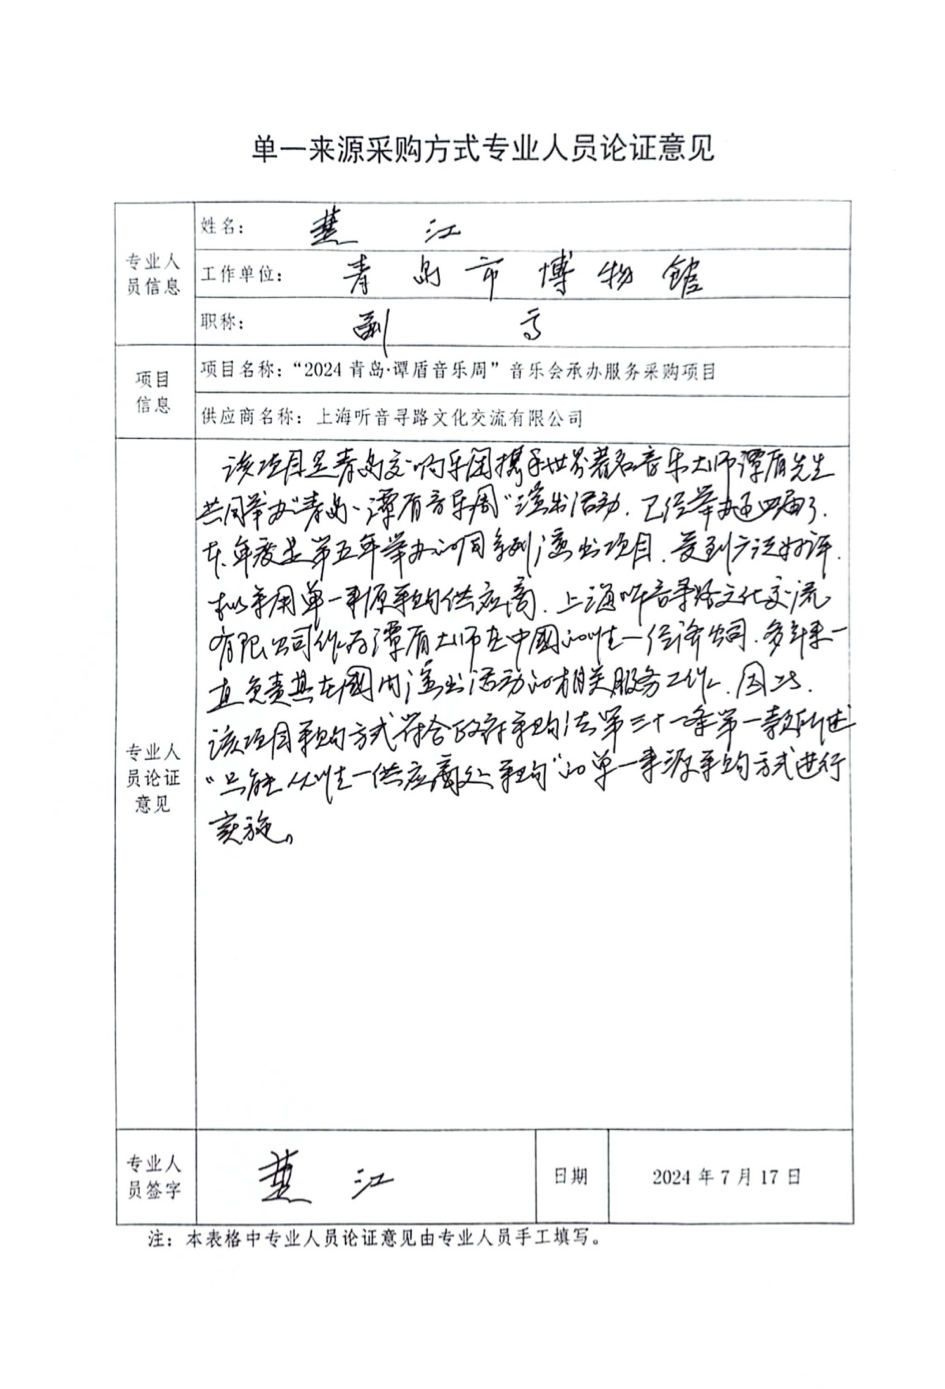 单一来源采购方式专业人员论证意见
专业人员信息
姓名： 江
工作单位： 青岛市博物馆
职称： 副高
项目信息
项目名称：“2024青岛·谭盾音乐周”音乐会承办服务采购项目
供应商名称：上海听音寻路文化交流有限公司
专业人员论证意见
该项目是青岛交响乐团携手世界著名音乐大师谭盾先生
共同举办“青岛·谭盾音乐周”演出活动，已经举办过四届了，
本年度是第五年举办的同系列演出项目，受到广泛好评，
拟采用单一来源采购供应商，上海听音寻路文化交流
有限公司作为谭盾大师在中國的唯一经济公司，多年来一
直负责其在國内演出活动的相关服务工作，因此，
该项目采购方式符合政府采购法第三十一条第一款所述
“只能从唯一供应商处采购”的单一来源采购方式进行
实施。
专业人员签字
江
日期
2024年7月17日
注：本表格中专业人员论证意见由专业人员手工填写。